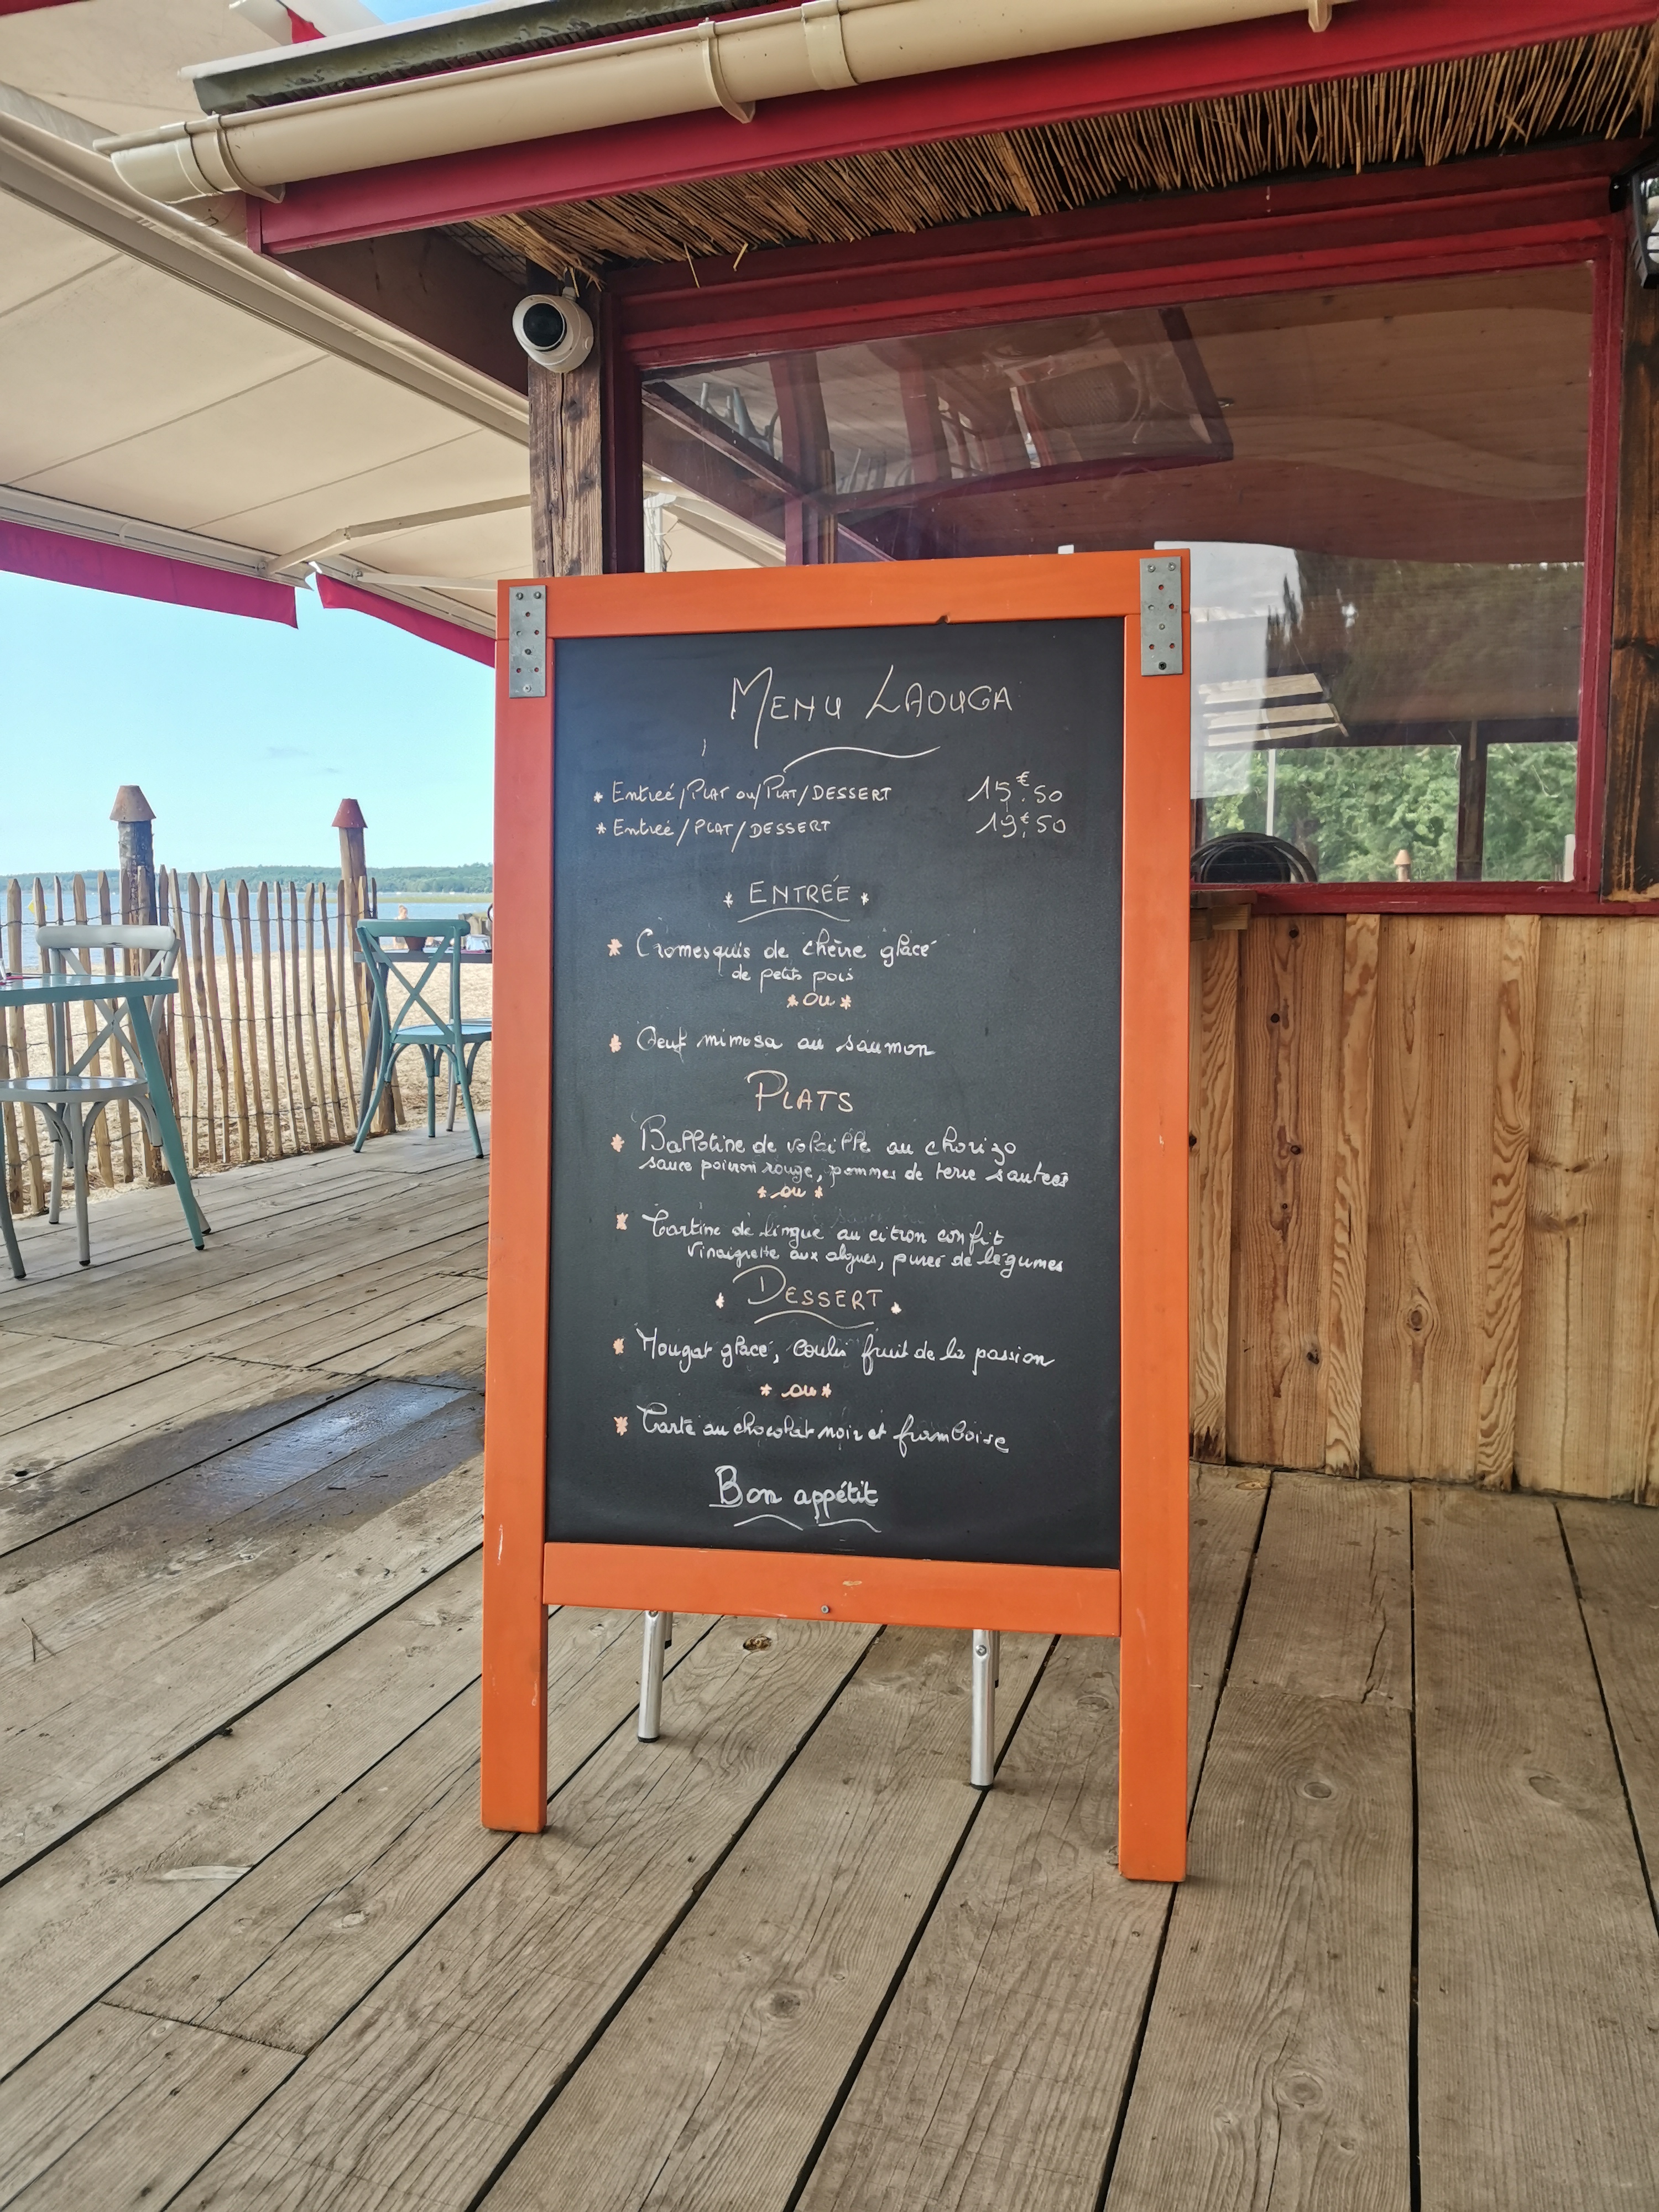 MENU LAOUGA
* Entreé/PLAT ou/PLAT/DESSERT 15€.50
* Entreé/PLAT/DESSERT 19€.50
* ENTRÉE *
* Cromesquis de chèvre glacé
de petits pois
* ou *
* Oeuf mimosa au saumon
PLATS
* Ballotine de volaille au chorizo
sauce poivron rouge, pommes de terre sauteés
* ou *
* Tartine de lingue au citron confit
Vinaigrette aux algues, pureé de légumes
DESSERT
* Nougat glacé, coulis fruit de la passion
* ou *
* Tarte au chocolat noir et framboise
Bon appétit